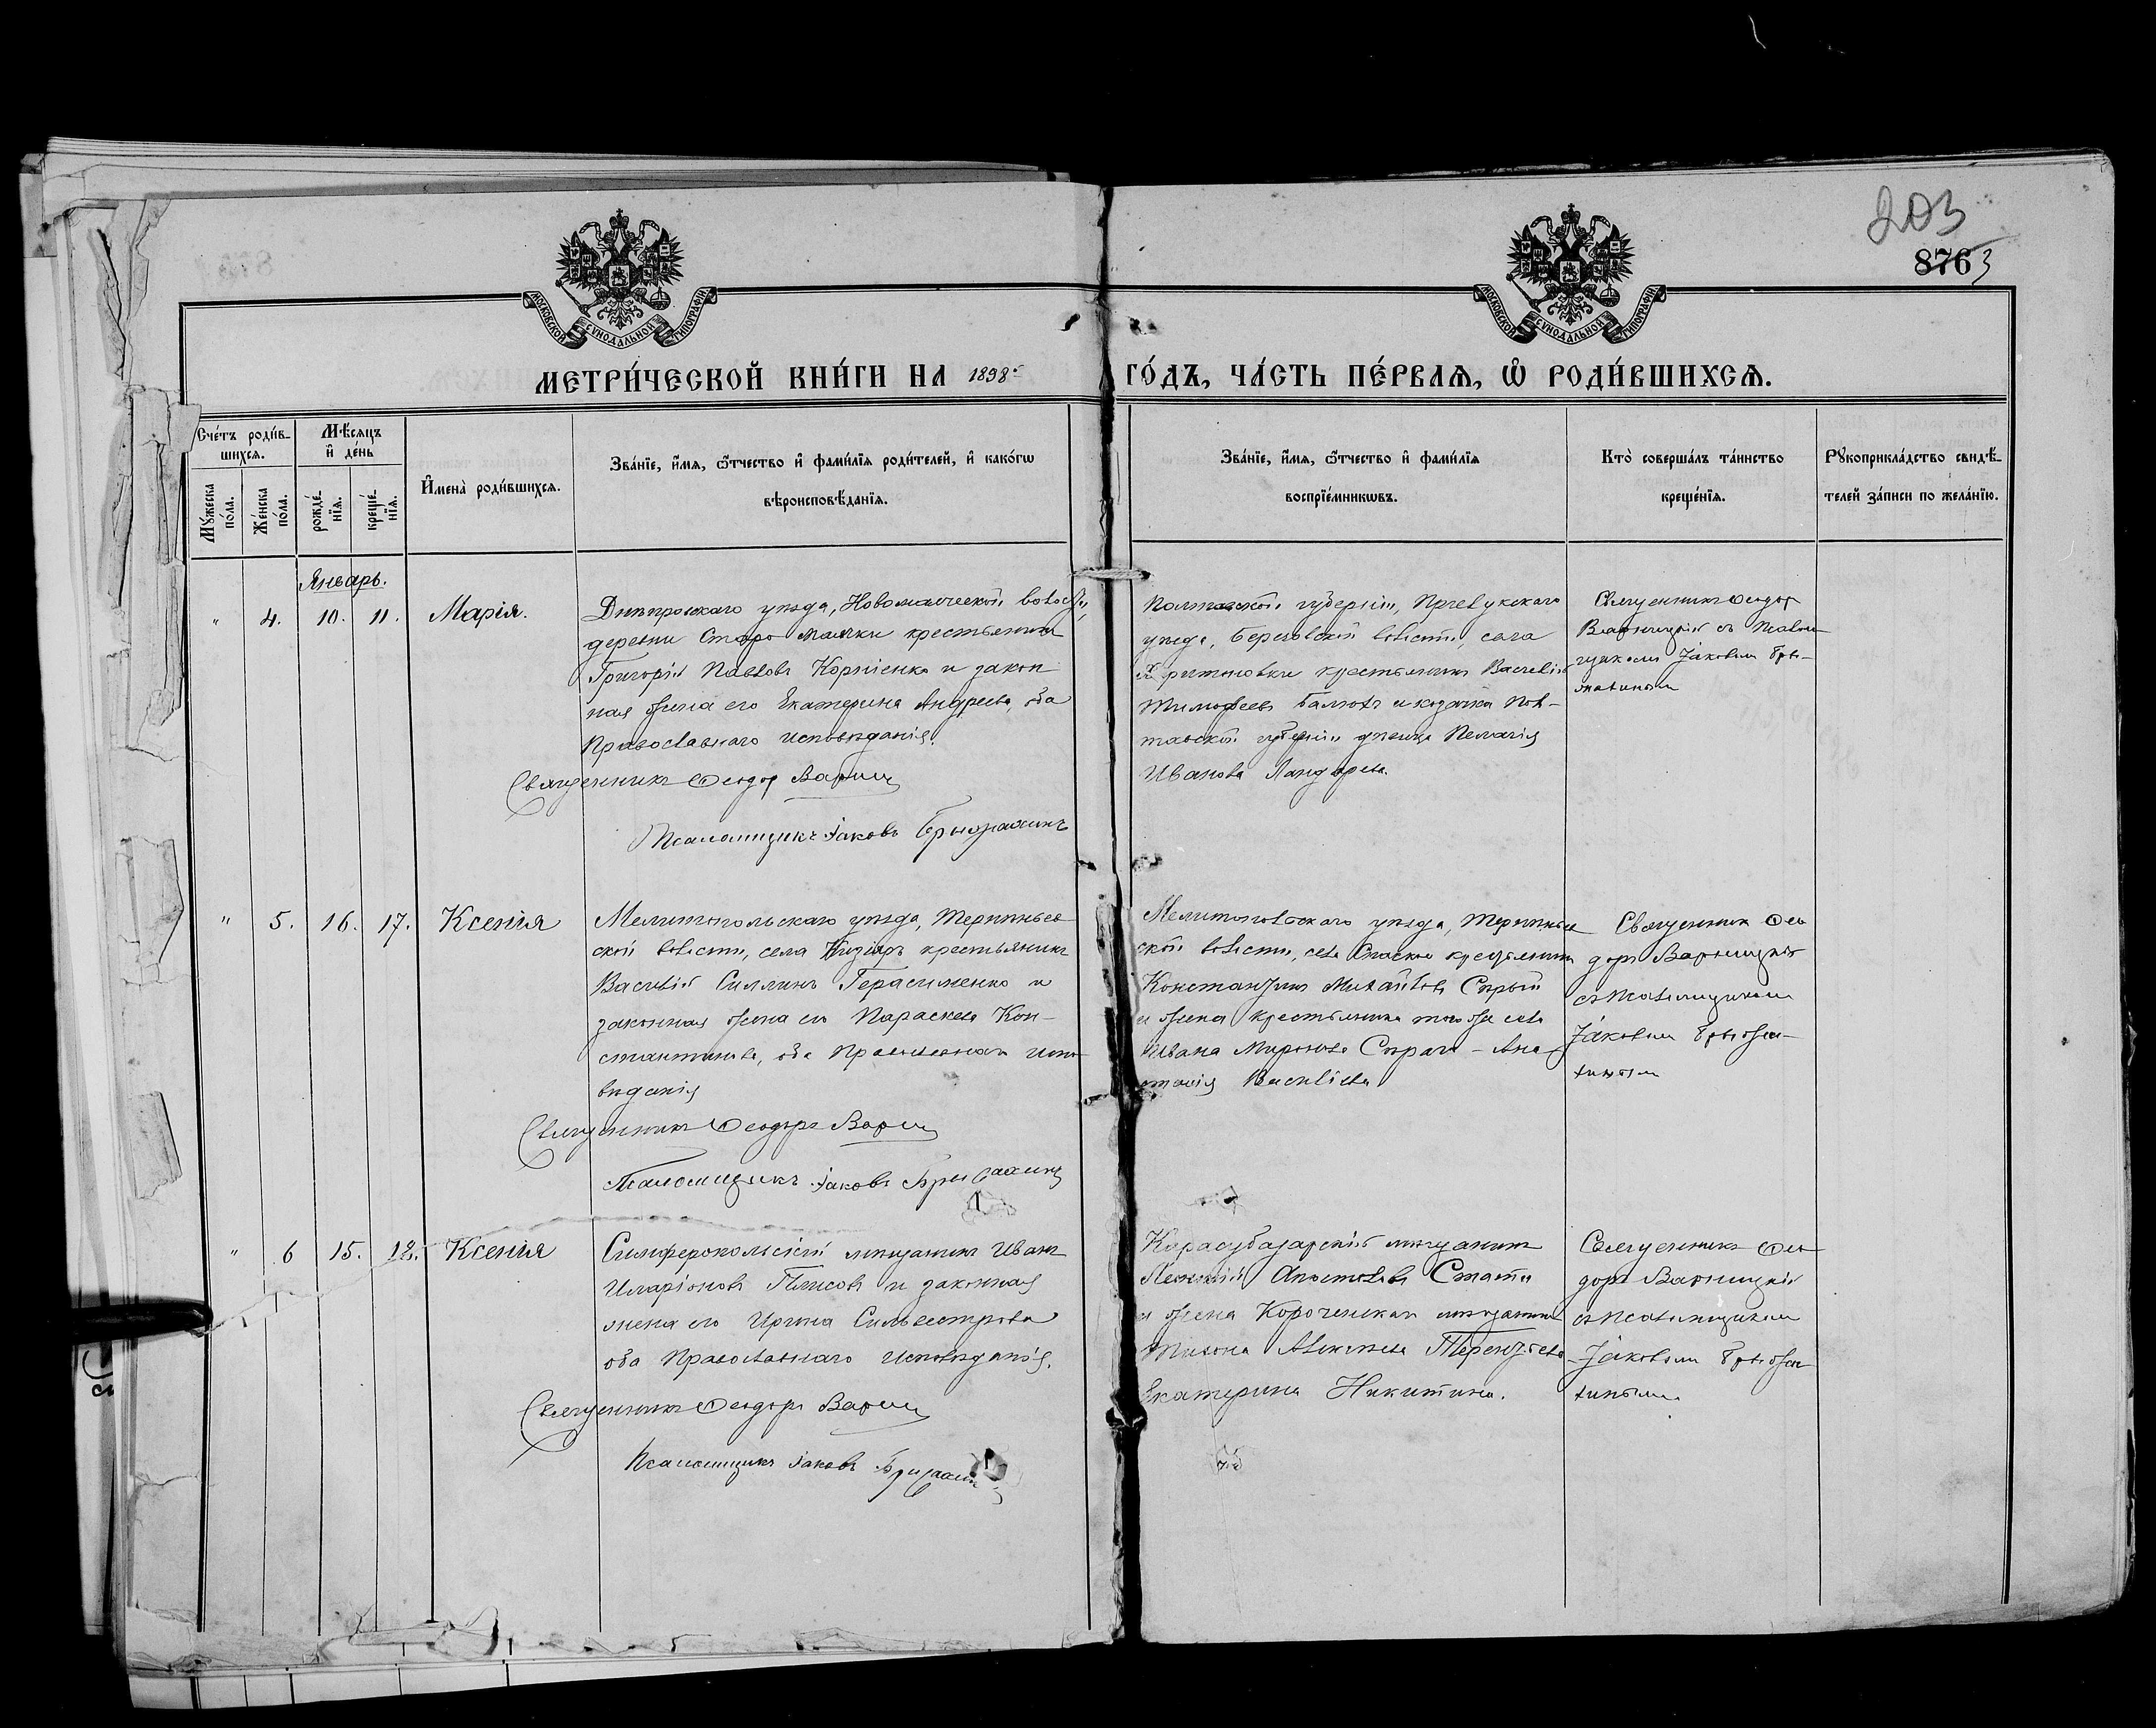 203
876 3
МОСКОВСКОЙ СУНОДАЛЬНОЙ ТИПОГРАФІИ.
МОСКОВСКОЙ СУНОДАЛЬНОЙ ТИПОГРАФІИ.
МЕТРИ́ЧЕСКОЙ КНИ́ГИ НА 1898 ГО́ДЪ, ЧА́СТЬ ПЕ́РВАѦ, Ѽ РОДИ́ВШИХСѦ.
Сче́тъ роди́в-
шихсѧ.
Мꙋ́жеска
по́ла.
Же́нска
по́ла.
Мѣ́сѧцъ
и҆ де́нь
рожде́-
нїѧ.
креще́-
нїѧ.
И҆мена̀ роди́вшихсѧ.
Зва́нїе, и҆́мѧ, ѻ҆́тчество и҆ фами́лїѧ роди́телей, и҆ како́гѡ
вѣроисповѣ́данїѧ.
Зва́нїе, и҆́мѧ, ѻ҆́тчество и҆ фами́лїѧ
воспрїе́мникѡвъ.
Кто̀ соверша́лъ та́инство
креще́нїѧ.
Рꙋкоприкла́дство свидѣ́-
телей за́писи по жела́нїю.
Январь.
" 4. 10. 11. Марія.
Днѣпровскаго уѣзда, Новомаяческой волости,
деревни Старо Маячки крестьянинъ
Григорій Павловъ Корніенко и закон-
ная жена его Екатерина Андреева, оба
Православнаго исповѣданія.
Священникъ Ѳеодоръ Варниц
Псаломщикъ Іаковъ Брыжахинъ
Полтавской губерніи,
уѣзда, волости, села
крестьянинъ Василій
Тимофеевъ и казачка Пол-
тавской губерніи Пелагія
Иванова
Священникъ Ѳеодоръ
Варницкій съ Псалом-
щикомъ Іаковомъ
" 5. 16. 17. Ксенія
Мелитопольскаго уѣзда, Терпѣньев-
ской волости, села Кизіяръ крестьянинъ
Василій Герасименко и
законная жена его Параскева Кон-
стантинова, оба Православнаго испо-
вѣданія
Священникъ Ѳеодоръ Варниц
Псаломщикъ Іаковъ
Мелитопольскаго уѣзда, Терпѣньев-
ской волости, села Спаское крестьянинъ
Константинъ Михайловъ Сѣрый
и жена крестьянина того же села
Ивана Миронова Сѣраго - Ана-
стасія Васильева
Священникъ Ѳео-
доръ Варницкій
съ Псаломщикомъ
Іаковомъ
" 6 15. 18. Ксенія
Симферопольскій мѣщанинъ Иванъ
Иларіоновъ Плисовъ и законная
жена его Ирина Сильвестрова
оба Православнаго исповѣданія.
Священникъ Ѳеодоръ Варниц
Псаломщикъ Іаковъ
Карасубазарскій мѣщанинъ
Апостоловъ
и жена мѣщанина
Тихона Алексѣева Терентьева
Екатерина Никитина.
Священникъ Ѳео-
доръ Варницкій
съ Псаломщикомъ
Іаковомъ